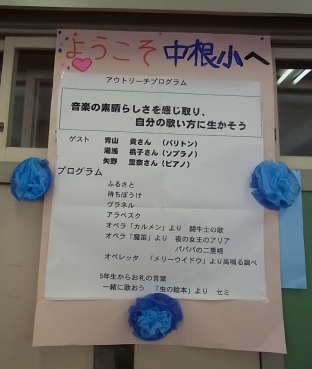 ようこそ 中根小へ
アウトリーチプログラム
音楽の素晴らしさを感じ取り、
自分の歌い方に生かそう
ゲスト 青山 貴さん (バリトン)
湯浅 桃子さん (ソプラノ)
矢野 里奈さん (ピアノ)
プログラム
ふるさと
待ちぼうけ
グラネル
アラベスク
オペラ「カルメン」より 闘牛士の歌
オペラ「魔笛」より 夜の女王のアリア
パパパの二重唱
オペレッタ 「メリーウイドウ」より高鳴る調べ
5年生からお礼の言葉
一緒に歌おう 「虫の絵本」より セミ